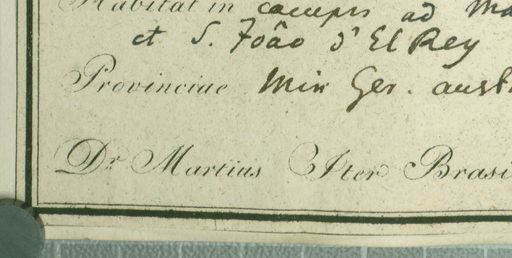 Habitat in campis ad Ma
et S. João d' El Rey
Provinciae Min Ger. aust
Dr. Martius Iter Brasi